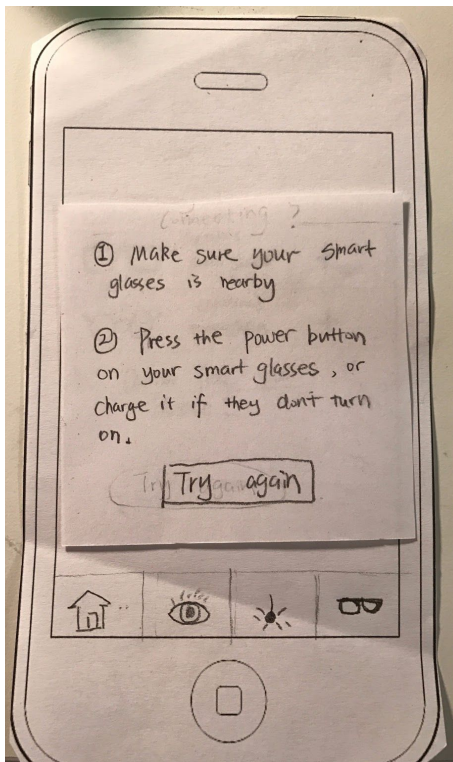 Connecting ?
① Make sure your smart
glasses is nearby
② Press the power button
on your smart glasses, or
charge it if they don't turn
on.
Try again